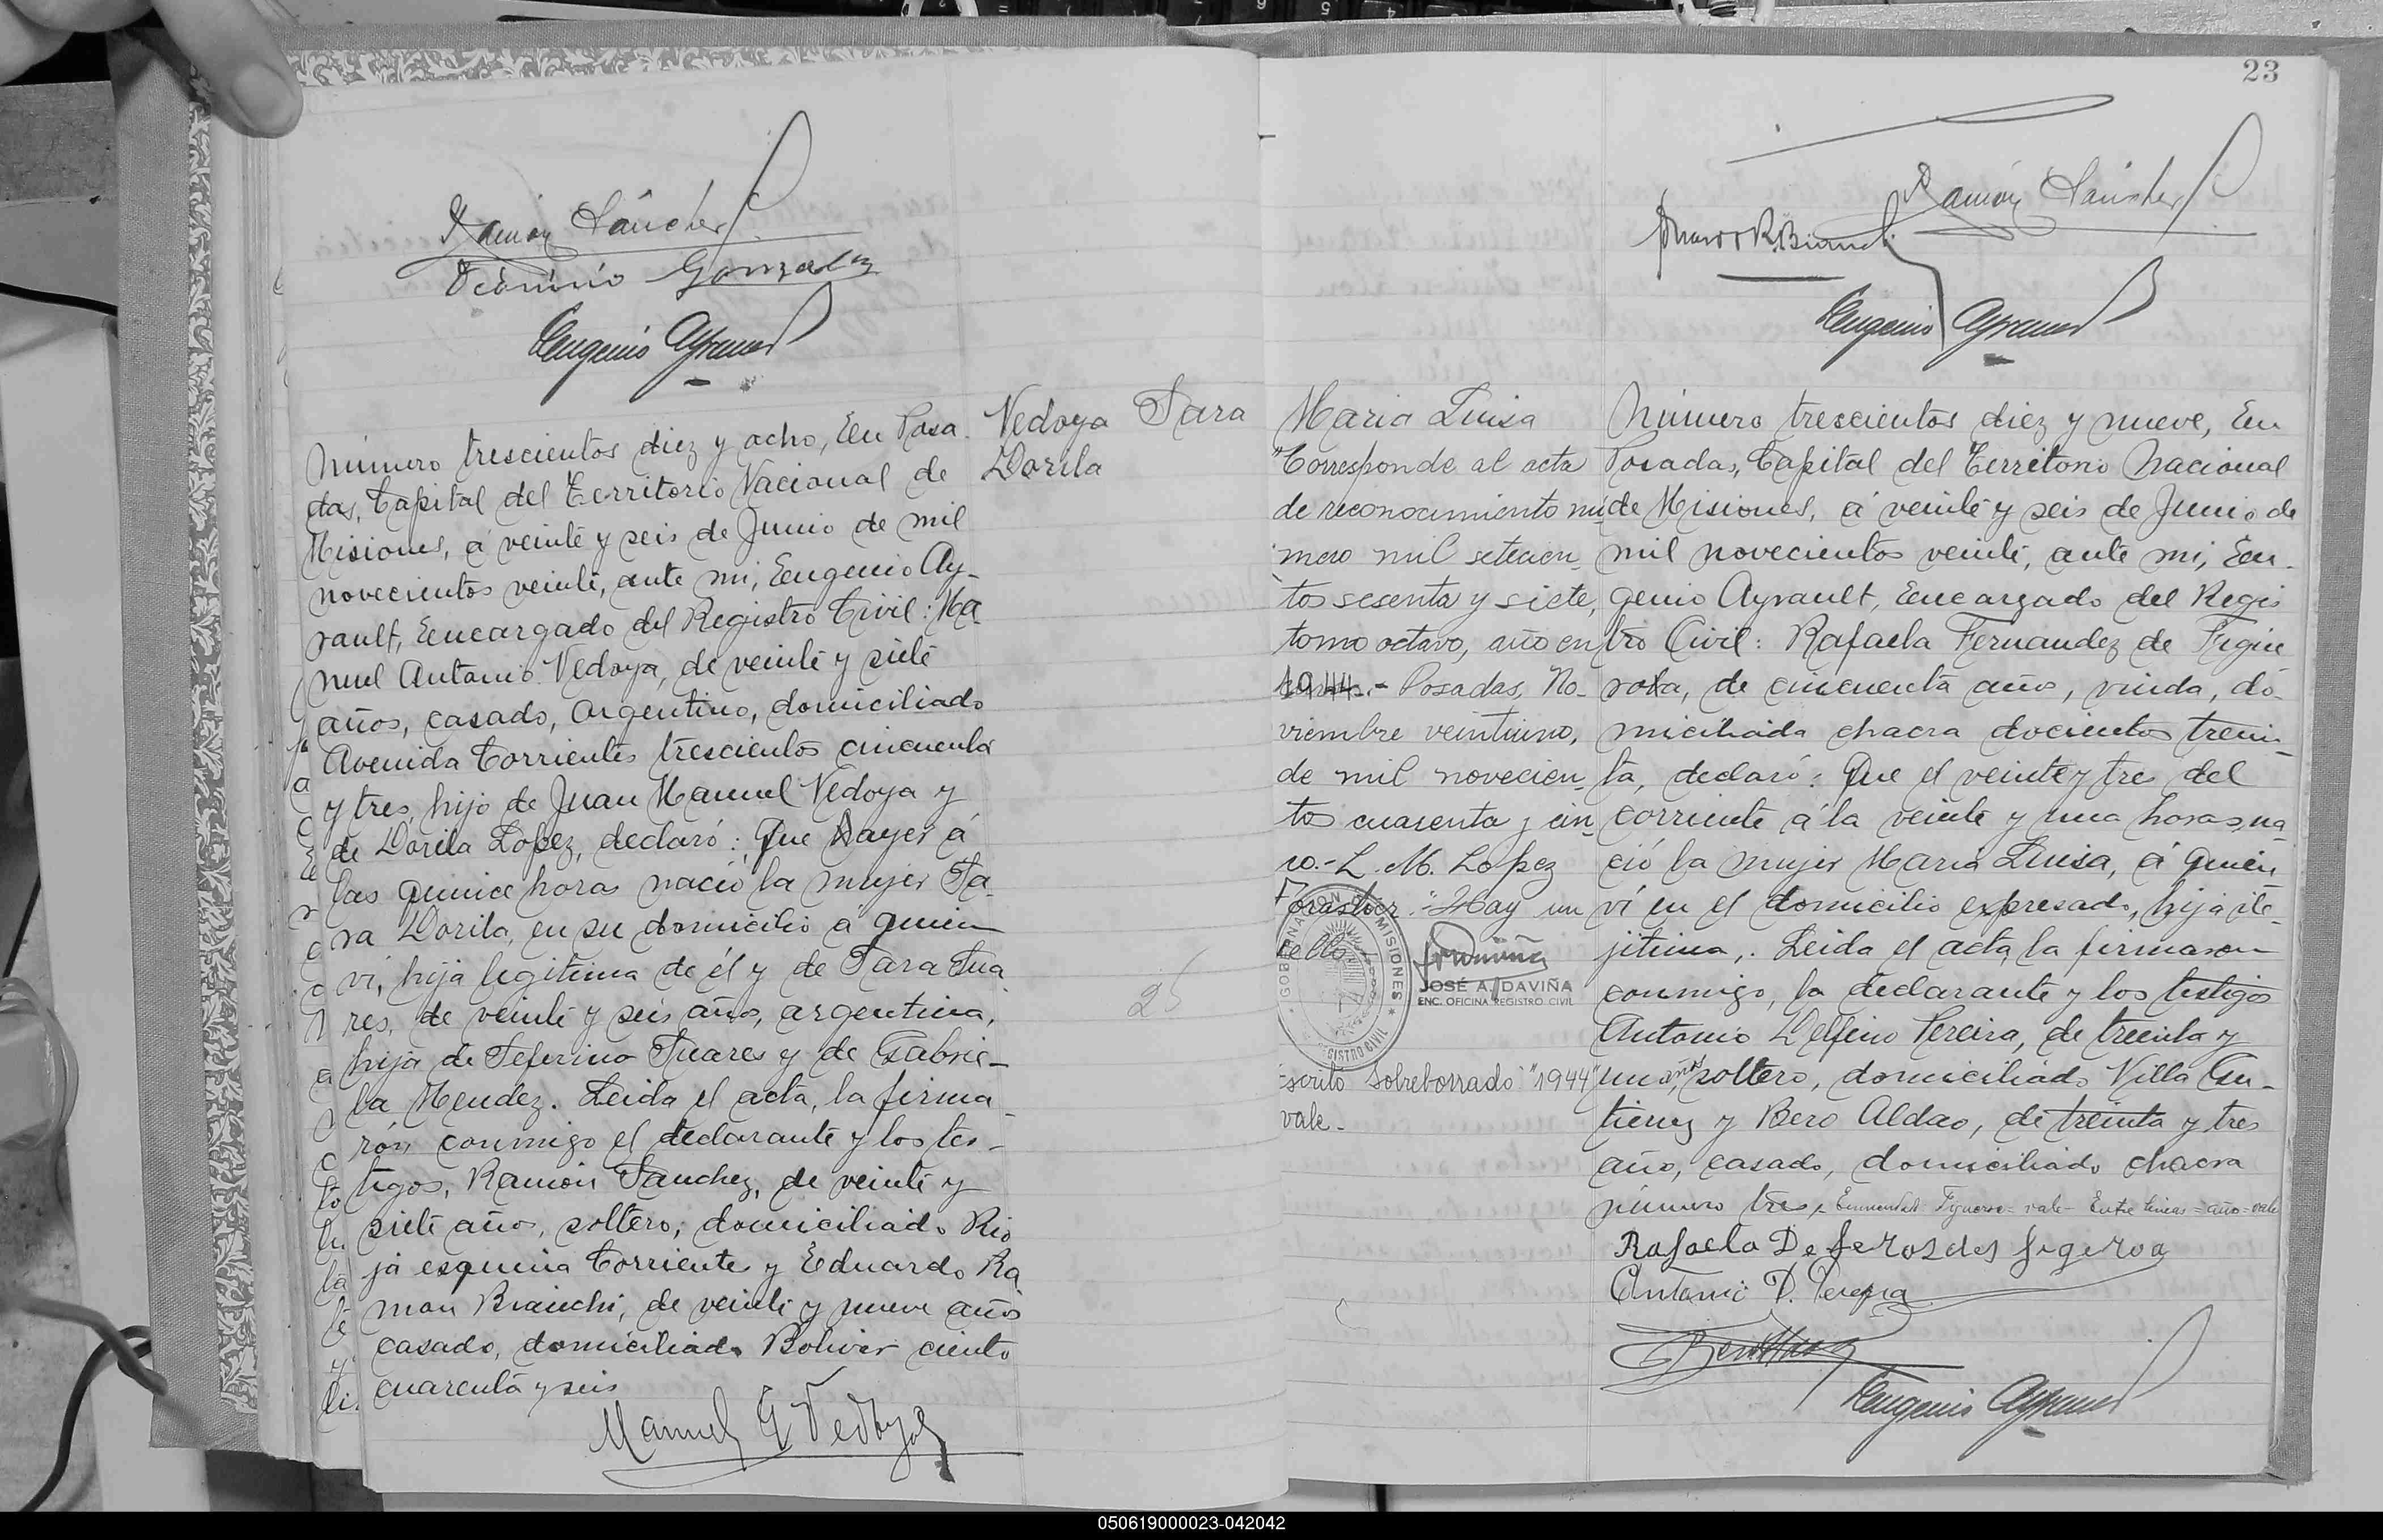 Ramón Sánchez
Gonzalez
Eugenio Ayrault
Vedoya Sara
Dorila
Número trescientos diez y ocho, En Posa
das, Capital del Territorio Nacional de
Misiones, á veinte y seis de Junio de mil
novecientos veinte, ante mi, Eugenio Ay-
rault, Encargado del Registro Civil: Ma-
nuel Antonio Vedoya, de veinte y siete
años, casado, argentino, domiciliado
Avenida Corrientes trescientos cincuenta
y tres, hijo de Juan Manuel Vedoya y
de Dorila Lopez, declaró: Que ayer á
las quince horas nació la mujer Sa-
ra Dorila, en su domicilio á quien
vi, hija legitima de él y de Sara Sua
res, de veinte y seis años, argentina,
hija de Seferino Suares y de Gabrie-
la Mendez. Leida el acta, la firma-
rón conmigo el declarante y los tes-
tigos, Ramón Sanchez, de veinte y
siete años, soltero, domiciliado Rio
ja esquina Corriente y Eduardo Ra
mon Bianchi, de veinte y nueve años
casado, domiciliado Bolivar ciento
cuarenta y seis
Manuel A Vedoya
25
23
Ramón Sánchez
R. Bianchi
Eugenio Ayrault
Maria Luisa
"Corresponde al acta
de reconocimiento nú
mero mil setecien-
tos sesenta y siete,
tomo octavo, año
1944.- Posadas, No-
viembre veintiuno,
de mil novecien-
tos cuarenta y cin-
co.- L. M. Lopez
Forastier.- Hay un
sello
GOBERNACION DE MISIONES
REGISTRO CIVIL
JOSÉ A. DAVIÑA
ENC. OFICINA REGISTRO CIVIL
Escrito sobreborrado "1944"
vale.
Número trescientos diez y nueve, En
Posadas, Capital del Territorio Nacional
de Misiones, á veinte y seis de Junio de
mil novecientos veinte, ante mi, Eu-
genio Ayrault, Encargado del Regis
tro Civil: Rafaela Fernandez de Figue
roa, de cincuenta años, viuda, do-
miciliada chacra docientos trein-
ta, declaró: Que el veinte y tres del
corriente á la veinte y una horas, na
ció la mujer Maria Luisa, á quien
ví en el domicilio expresado, hija ile-
jitima,. Leida el acta, la firmaron
conmigo, la declarante y los testigos
Antonio Delfino Pereira, de treinta y
un años soltero, domiciliado Villa Gu-
tierrez y Bero Aldao, de treinta y tres
años, casado, domiciliado chacra
número tres, Enmendado Figueroa = vale - Entre lineas = año = vale
Rafaela De figeroa
Antonio D. Pereira
Eugenio Ayrault
050619000023-042042